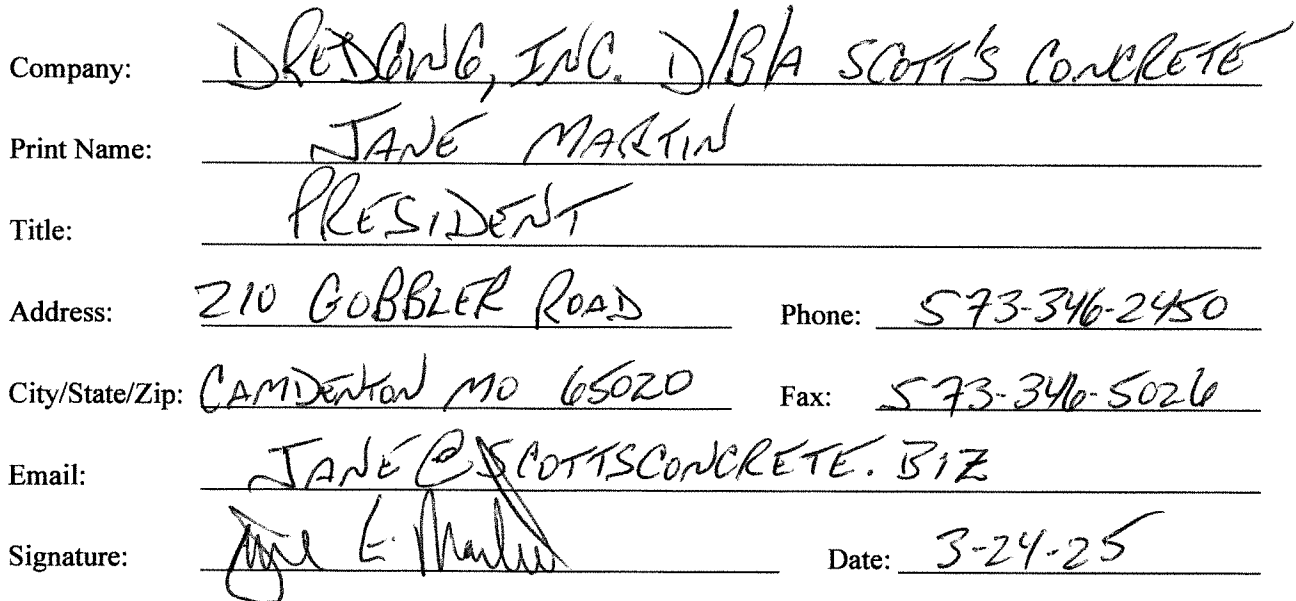 Company: DREDGING, INC. D/B/A SCOTT'S CONCRETE
Print Name: JANE MARTIN
Title: PRESIDENT
Address: 210 GOBBLER ROAD Phone: 573-346-2450
City/State/Zip: CAMDENTON MO 65020 Fax: 573-346-5026
Email: JANE@SCOTTSCONCRETE.BIZ
Signature: Jane E. Martin Date: 3-24-25